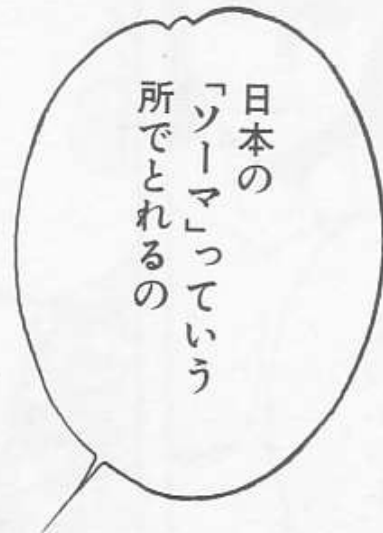 日本の
「ソーマ」っていう
所でとれるの